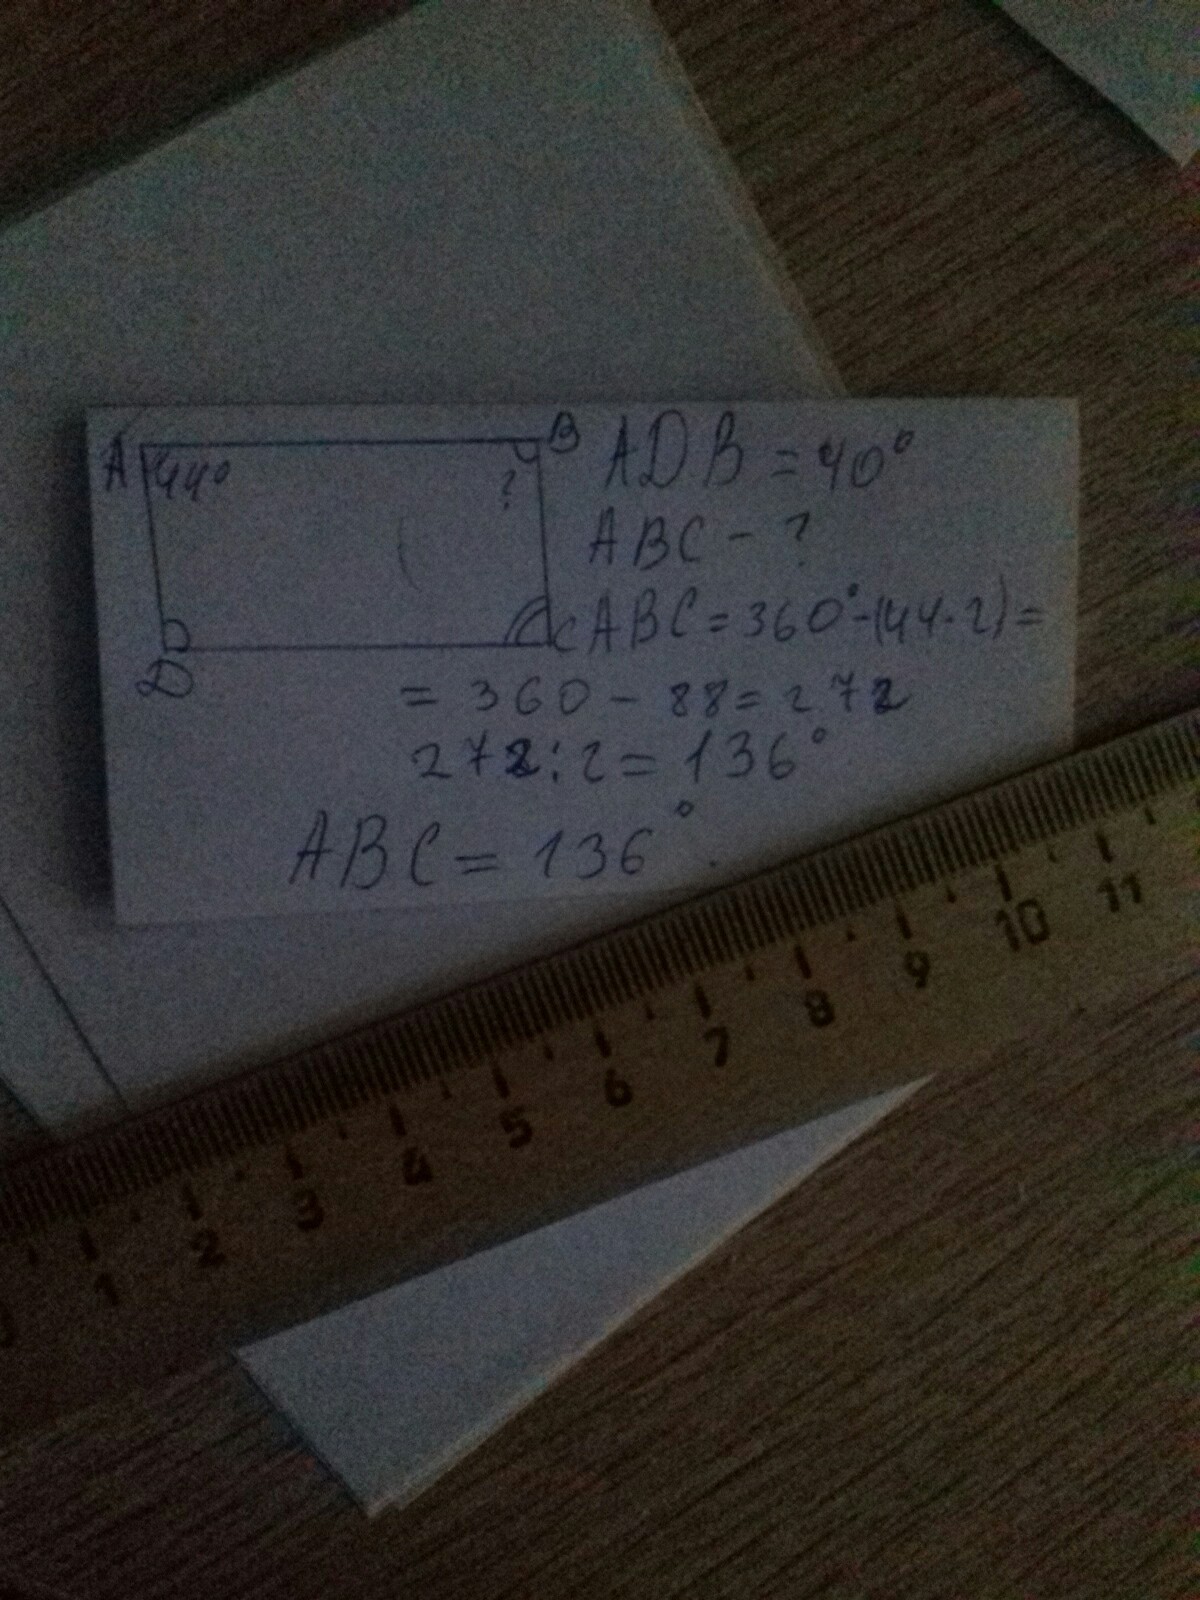 A 44° ? B ADB = 40°
ABC - ?
D C ABC = 360° - (44 · 2) =
= 360 - 88 = 272
272 : 2 = 136°
ABC = 136°.
1 2 3 4 5 6 7 8 9 10 11